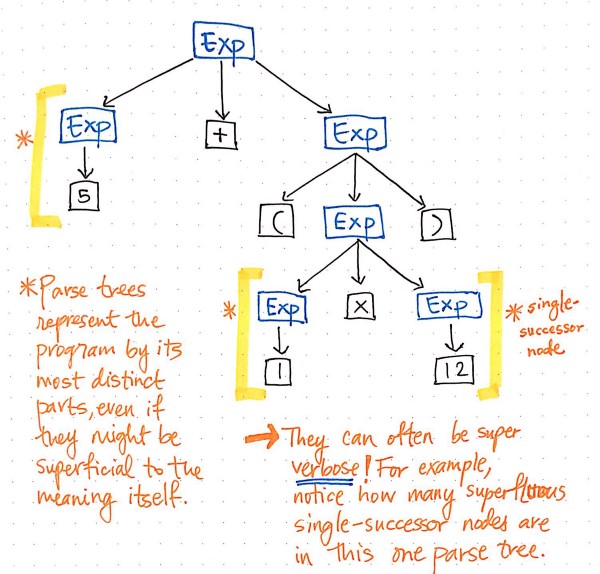 Exp
Exp + Exp
5
( Exp )
Exp x Exp
1 12
*
*
* single-
successor
node
*Parse trees
represent the
program by its
most distinct
parts, even if
they might be
superficial to the
meaning itself.
→ They can often be super
verbose! For example,
notice how many superfluous
single-successor nodes are
in this one parse tree.